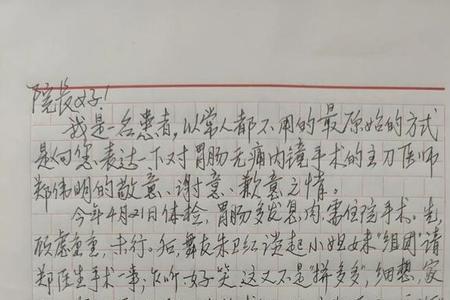 院长好!
我是一名患者,以常人都不用的最原始的方式
是向您表达一下对胃肠无痛内镜手术的主刀医师
郑伟明的敬意、谢意、歉意之情。
今年4月21日体检,胃肠多发息肉,需住院手术。先
顾虑重重,未行。后,舞友朱卫红谈起小姐妹"组团"请
郑医生手术一事;乍听:好笑,这又不是"拼多多",细想,家